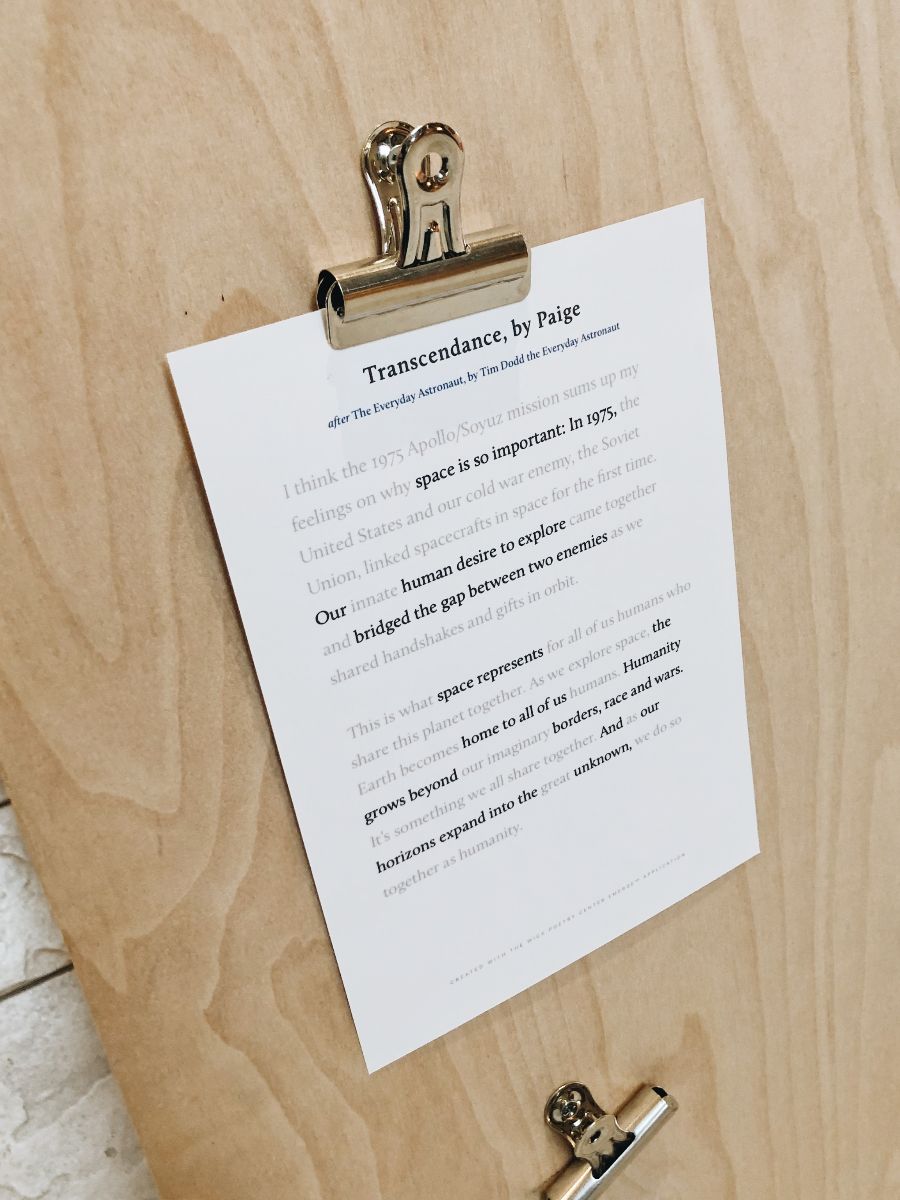 Transcendance, by Paige
after The Everyday Astronaut, by Tim Dodd the Everyday Astronaut
I think the 1975 Apollo/Soyuz mission sums up my
feelings on why space is so important: In 1975, the
United States and our cold war enemy, the Soviet
Union, linked spacecrafts in space for the first time.
Our innate human desire to explore came together
and bridged the gap between two enemies as we
shared handshakes and gifts in orbit.
This is what space represents for all of us humans who
share this planet together. As we explore space, the
Earth becomes home to all of us humans. Humanity
grows beyond our imaginary borders, race and wars.
It's something we all share together. And as our
horizons expand into the great unknown, we do so
together as humanity.
CREATED WITH THE WICK POETRY CENTER EMERGE™ APPLICATION